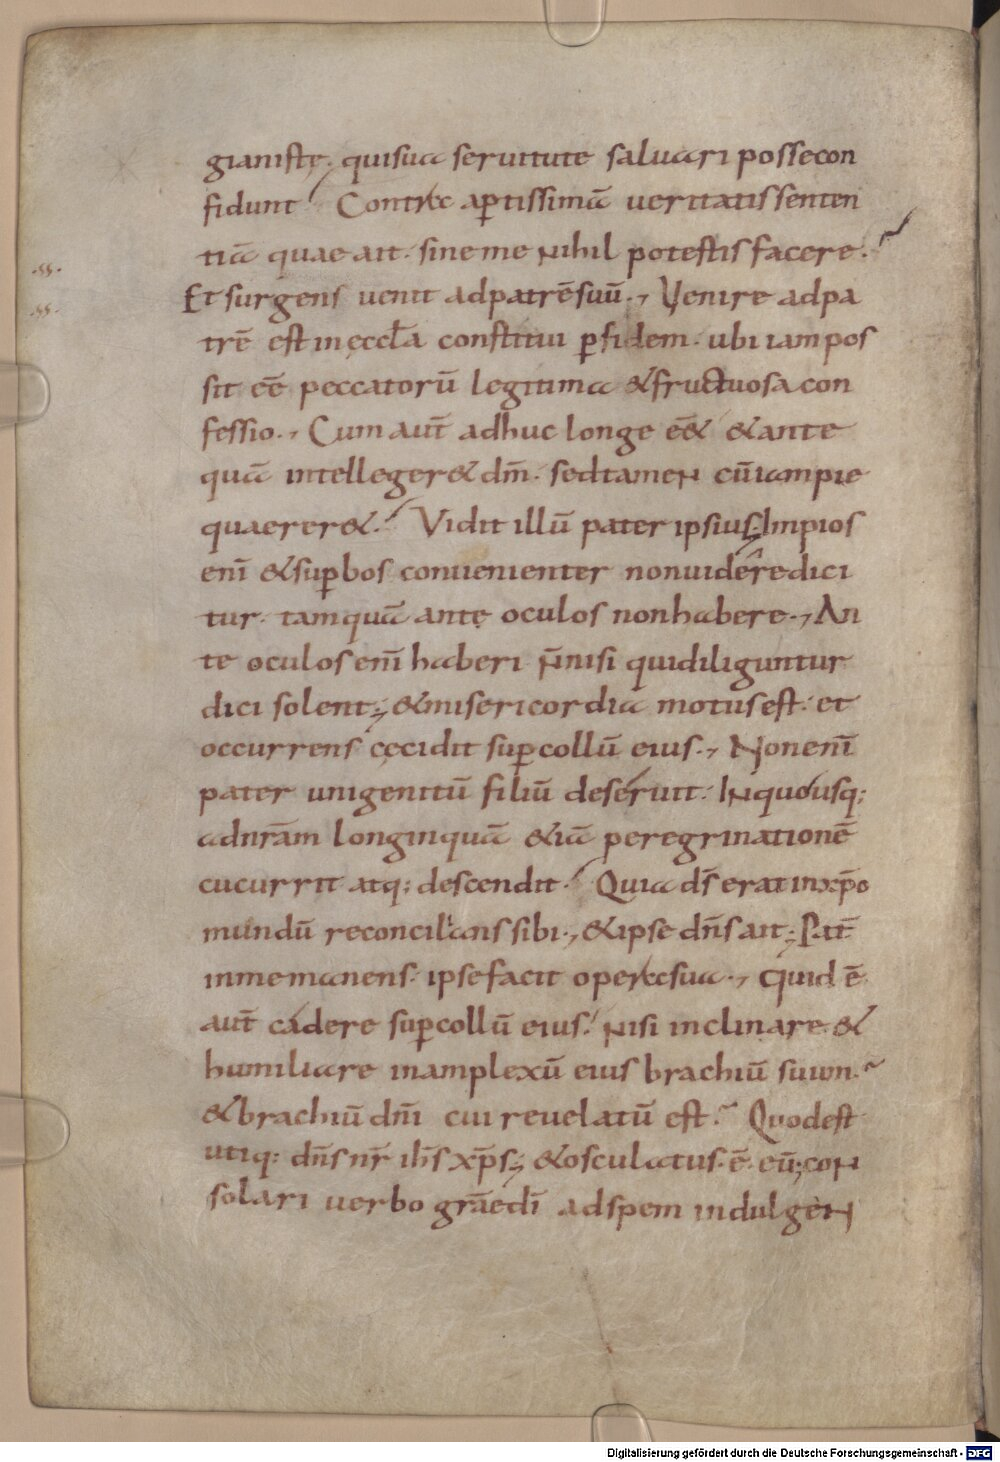 gianistę. quisua seruitute saluari posse con
fidunt Contra aptissimā ueritatis senten
tiā quae ait. sine me nihil potestis facere.
.ss.
Et surgens uenit ad patrē suū., Venire ad pa
.ss.
trē est in ęccła constitui p fidem. ubi iam pos
sit eē peccatorū legitima & fructuosa con
fessio., Cum aut̄ adhuc longe eē& & ante
quā intelleger& dm̄. sed tamen cū iam pie
quaerer&. Vidit illū pater ipsius; Impios
enī & supbos conuenienter non uidere dici
tur. tamquā ante oculos non habere., An
te oculos enī haberi n̄ nisi qui diliguntur
dici solent; & misericordia motus est. et
occurrens cecidit sup collū eius., Non enī
pater unigenitū filiū deseruit. In quo usq;
ad nr̄am longinquā & iā peregrinationē
cucurrit atq; descendit. Quia ds̄ erat in xp̄o
mundū reconcilians sibi., & ipse dn̄s ait; Pat̄
in me manens. ipse facit opera sua., Quid ē
aut̄ cadere sup collū eius. nisi inclinare &
humiliare in amplexū eius brachiū suum.
& brachiū dn̄i cui reuelatū est. Quod est
utiq; dn̄s nr̄ ih̄s xp̄s; & osculatus. ē. eū; con
solari uerbo grāe dī ad spem indulgen
Digitalisierung gefördert durch die Deutsche Forschungsgemeinschaft - DFG